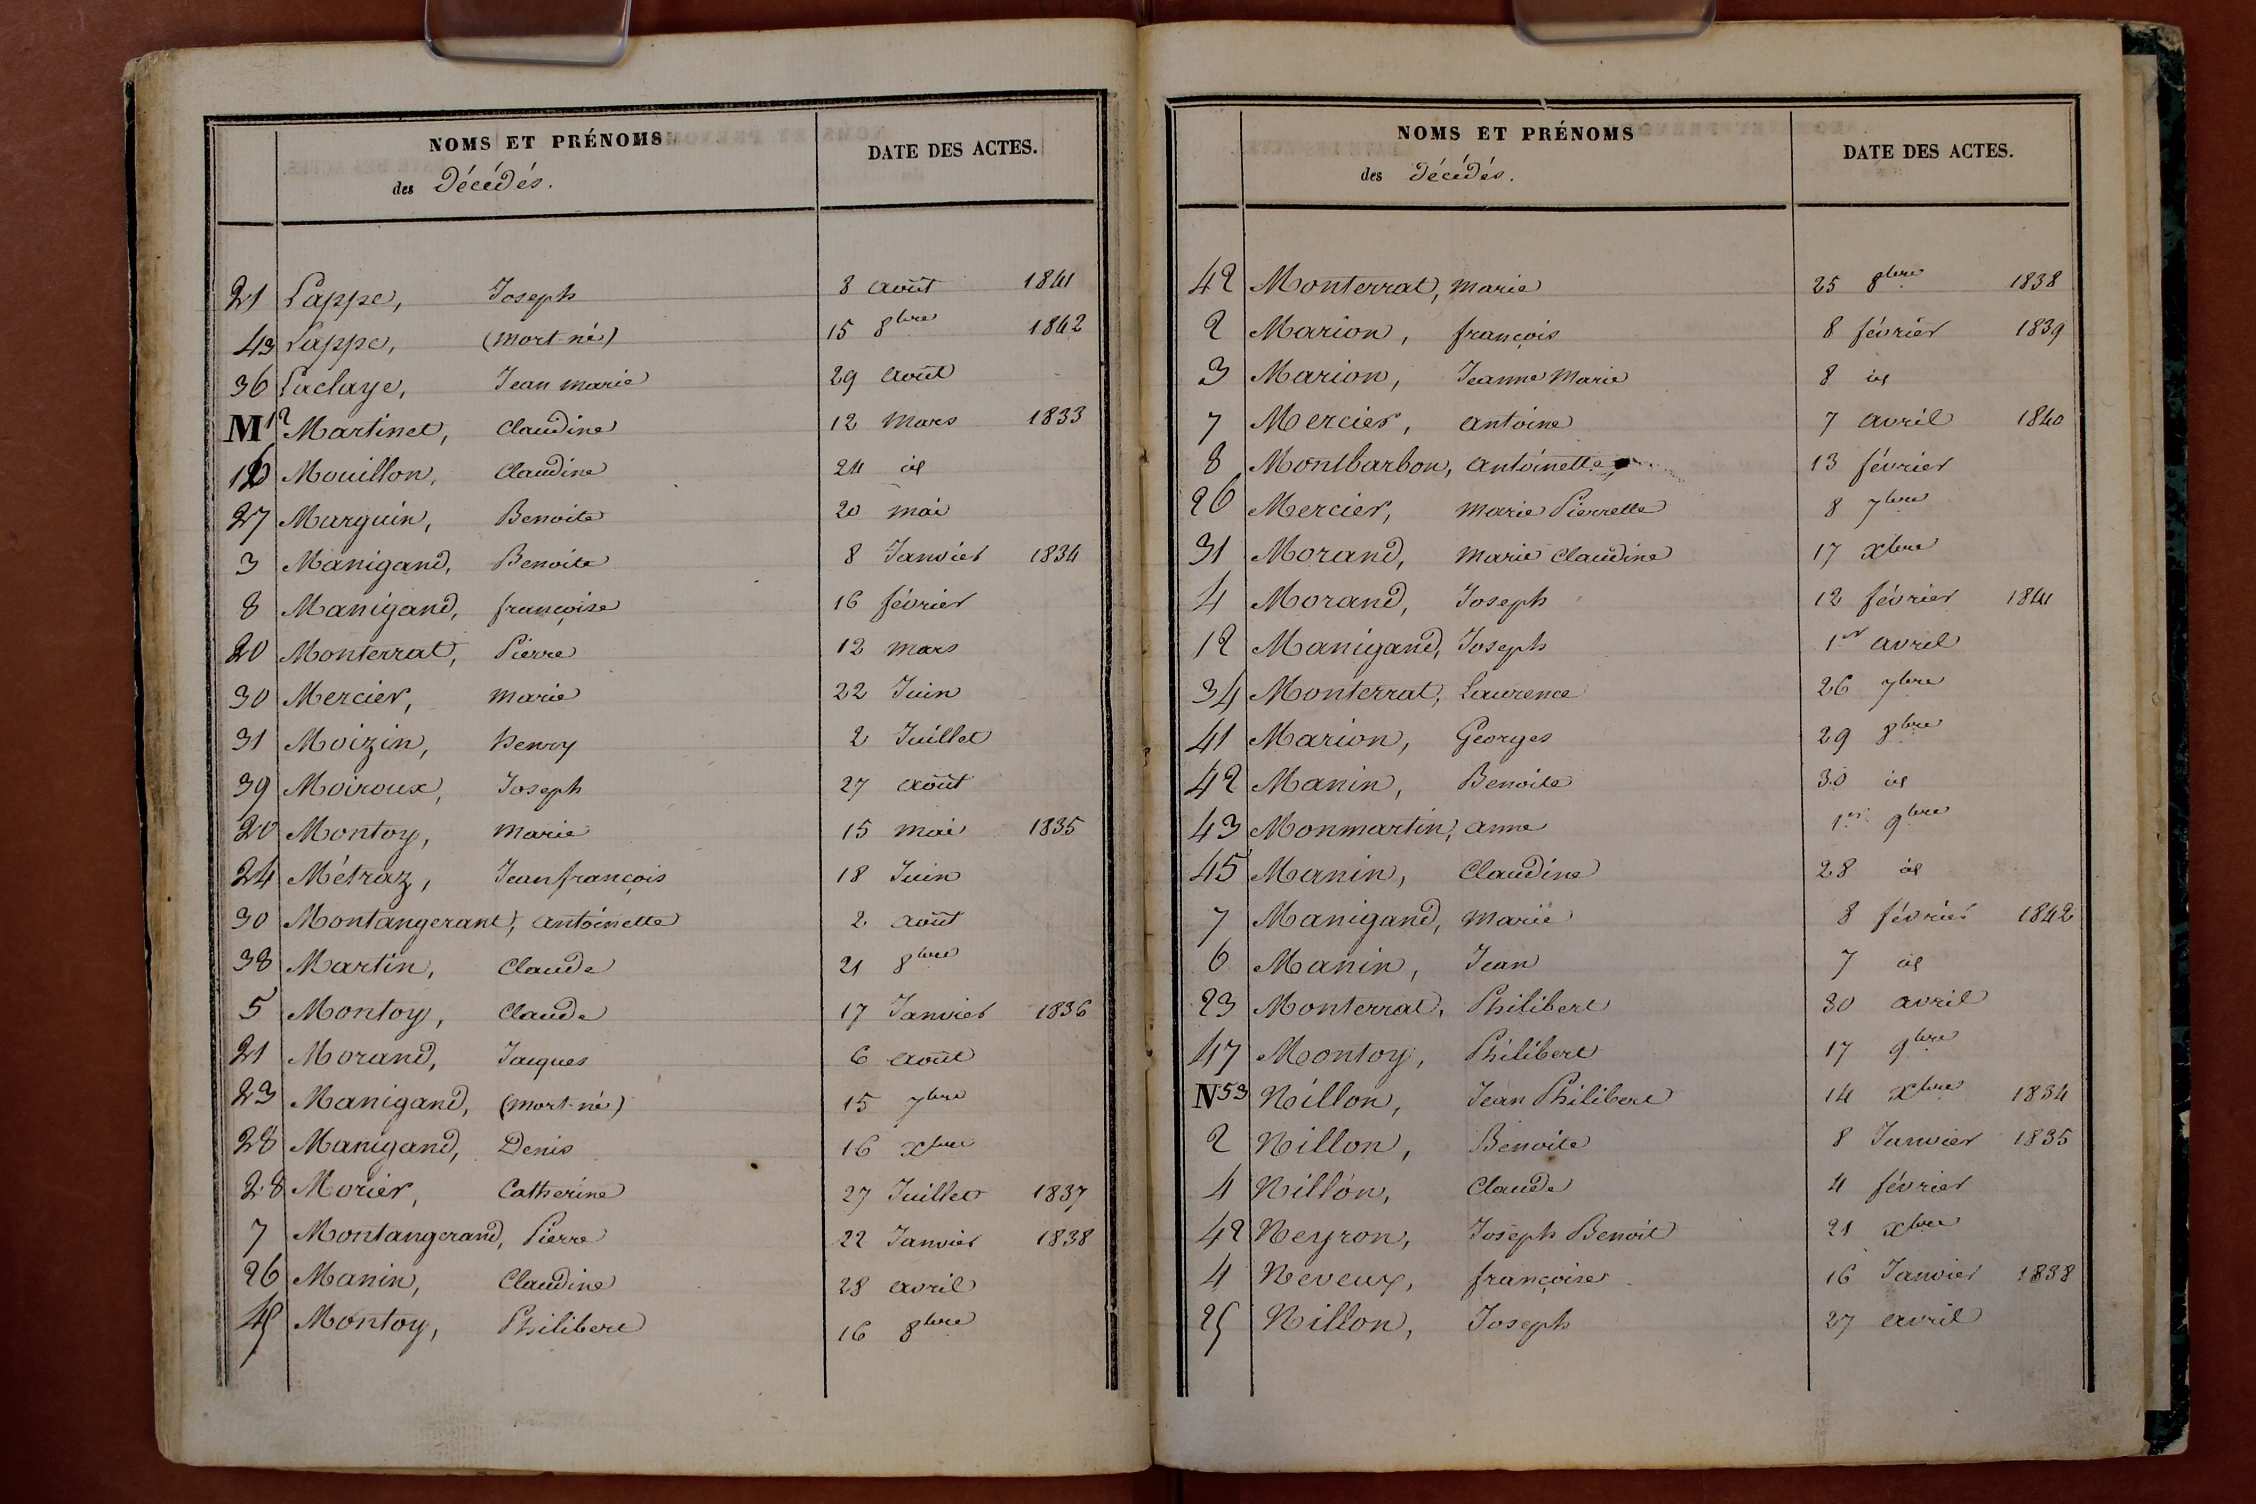 NOMS ET PRÉNOMS
des Décédés.
DATE DES ACTES.
21 Lappe, Joseph 8 août 1841
43 Lappe, (mort-né) 15 8bre 1842
36 Laclaye, Jean marie 29 août
M Martinet, Claudine 12 Mars 1833
16 Mouillon, Claudine 24 id
27 Marguin, Benoite 20 mai
3 Manigand, Benoite 8 Janvier 1834
8 Manigand, françoise 16 février
20 Monterrat, Pierre 12 mars
30 Mercier, marie 22 Juin
31 Moizin, henry 2 Juillet
39 Moiroux, Joseph 27 août
20 Montoy, Marie 15 mai 1835
24 Métraz, Jean françois 18 Juin
30 Montangerant, antoinette 2 août
38 Martin, Claude 21 8bre
5 Montoy, Claude 17 Janvier 1836
21 Morand, Jacques 6 août
23 Manigand, (mort-né) 15 7bre
28 Manigand, Denis 16 xbre
28 Morier, Catherine 27 Juillet 1837
7 Montangerand, Pierre 22 Janvier 1838
26 Manin, Claudine 28 avril
45 Montoy, Philibert 16 8bre
NOMS ET PRÉNOMS
des Décédés.
DATE DES ACTES.
42 Monterrat, Marie 25 8bre 1838
2 Marion, françois 8 février 1839
3 Marion, Jeanne Marie 8 id
7 Mercier, antoine 7 avril 1840
8 Montbarbon, antoinette 13 février
26 Mercier, Marie Pierrette 8 7bre
31 Morand, Marie Claudine 17 xbre
4 Morand, Joseph 12 février 1841
12 Manigand, Joseph 1er avril
34 Monterrat, Laurence 26 7bre
41 Marion, Georges 29 8bre
42 Manin, Benoite 30 id
43 Monmartin, anne 1er 9bre
45 Manin, Claudine 28 id
7 Manigand, Marie 8 février 1842
6 Manin, Jean 7 id
23 Monterrat, Philibert 30 avril
47 Montoy, Philibert 17 9bre
N 53 Nillon, Jean Philibert 14 xbre 1834
2 Nillon, Benoite 8 Janvier 1835
4 Nillon, Claude 4 février
42 Neyron, Joseph Benoit 21 xbre
4 Neveux, françoise 16 Janvier 1838
25 Nillon, Joseph 27 avril